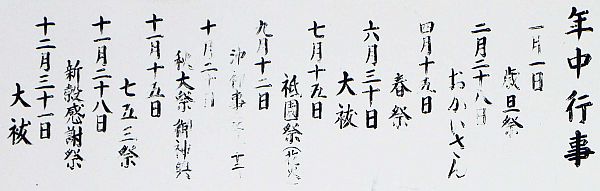 年中行事
一月一日
歳旦祭
二月二十八日
おかいさん
四月十五日
春祭
六月三十日
大祓
七月十五日
祇園祭
九月十二日
十月二十日
秋大祭
御神
十一月十五日
七五三祭
十一月二十八日
新穀感謝祭
十二月三十一日
大祓